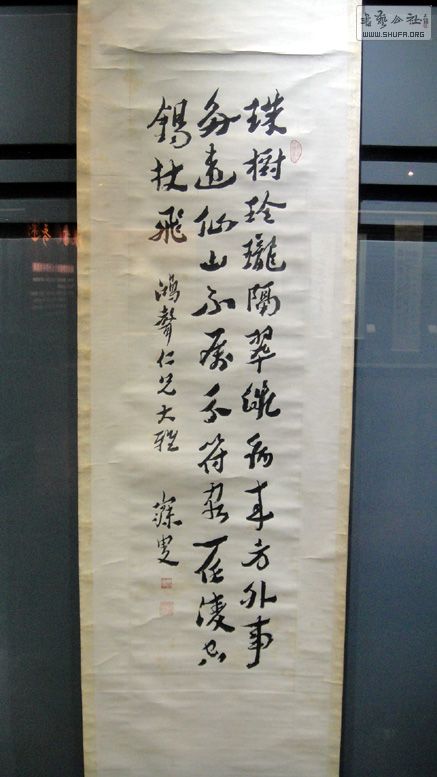 珠樹玲瓏隔翠微病来方外事
多違仙山不屬分符客一任凌空
錫杖飛
鴻聲仁兄大雅
寐叟
書藝公社
WWW.SHUFA.ORG